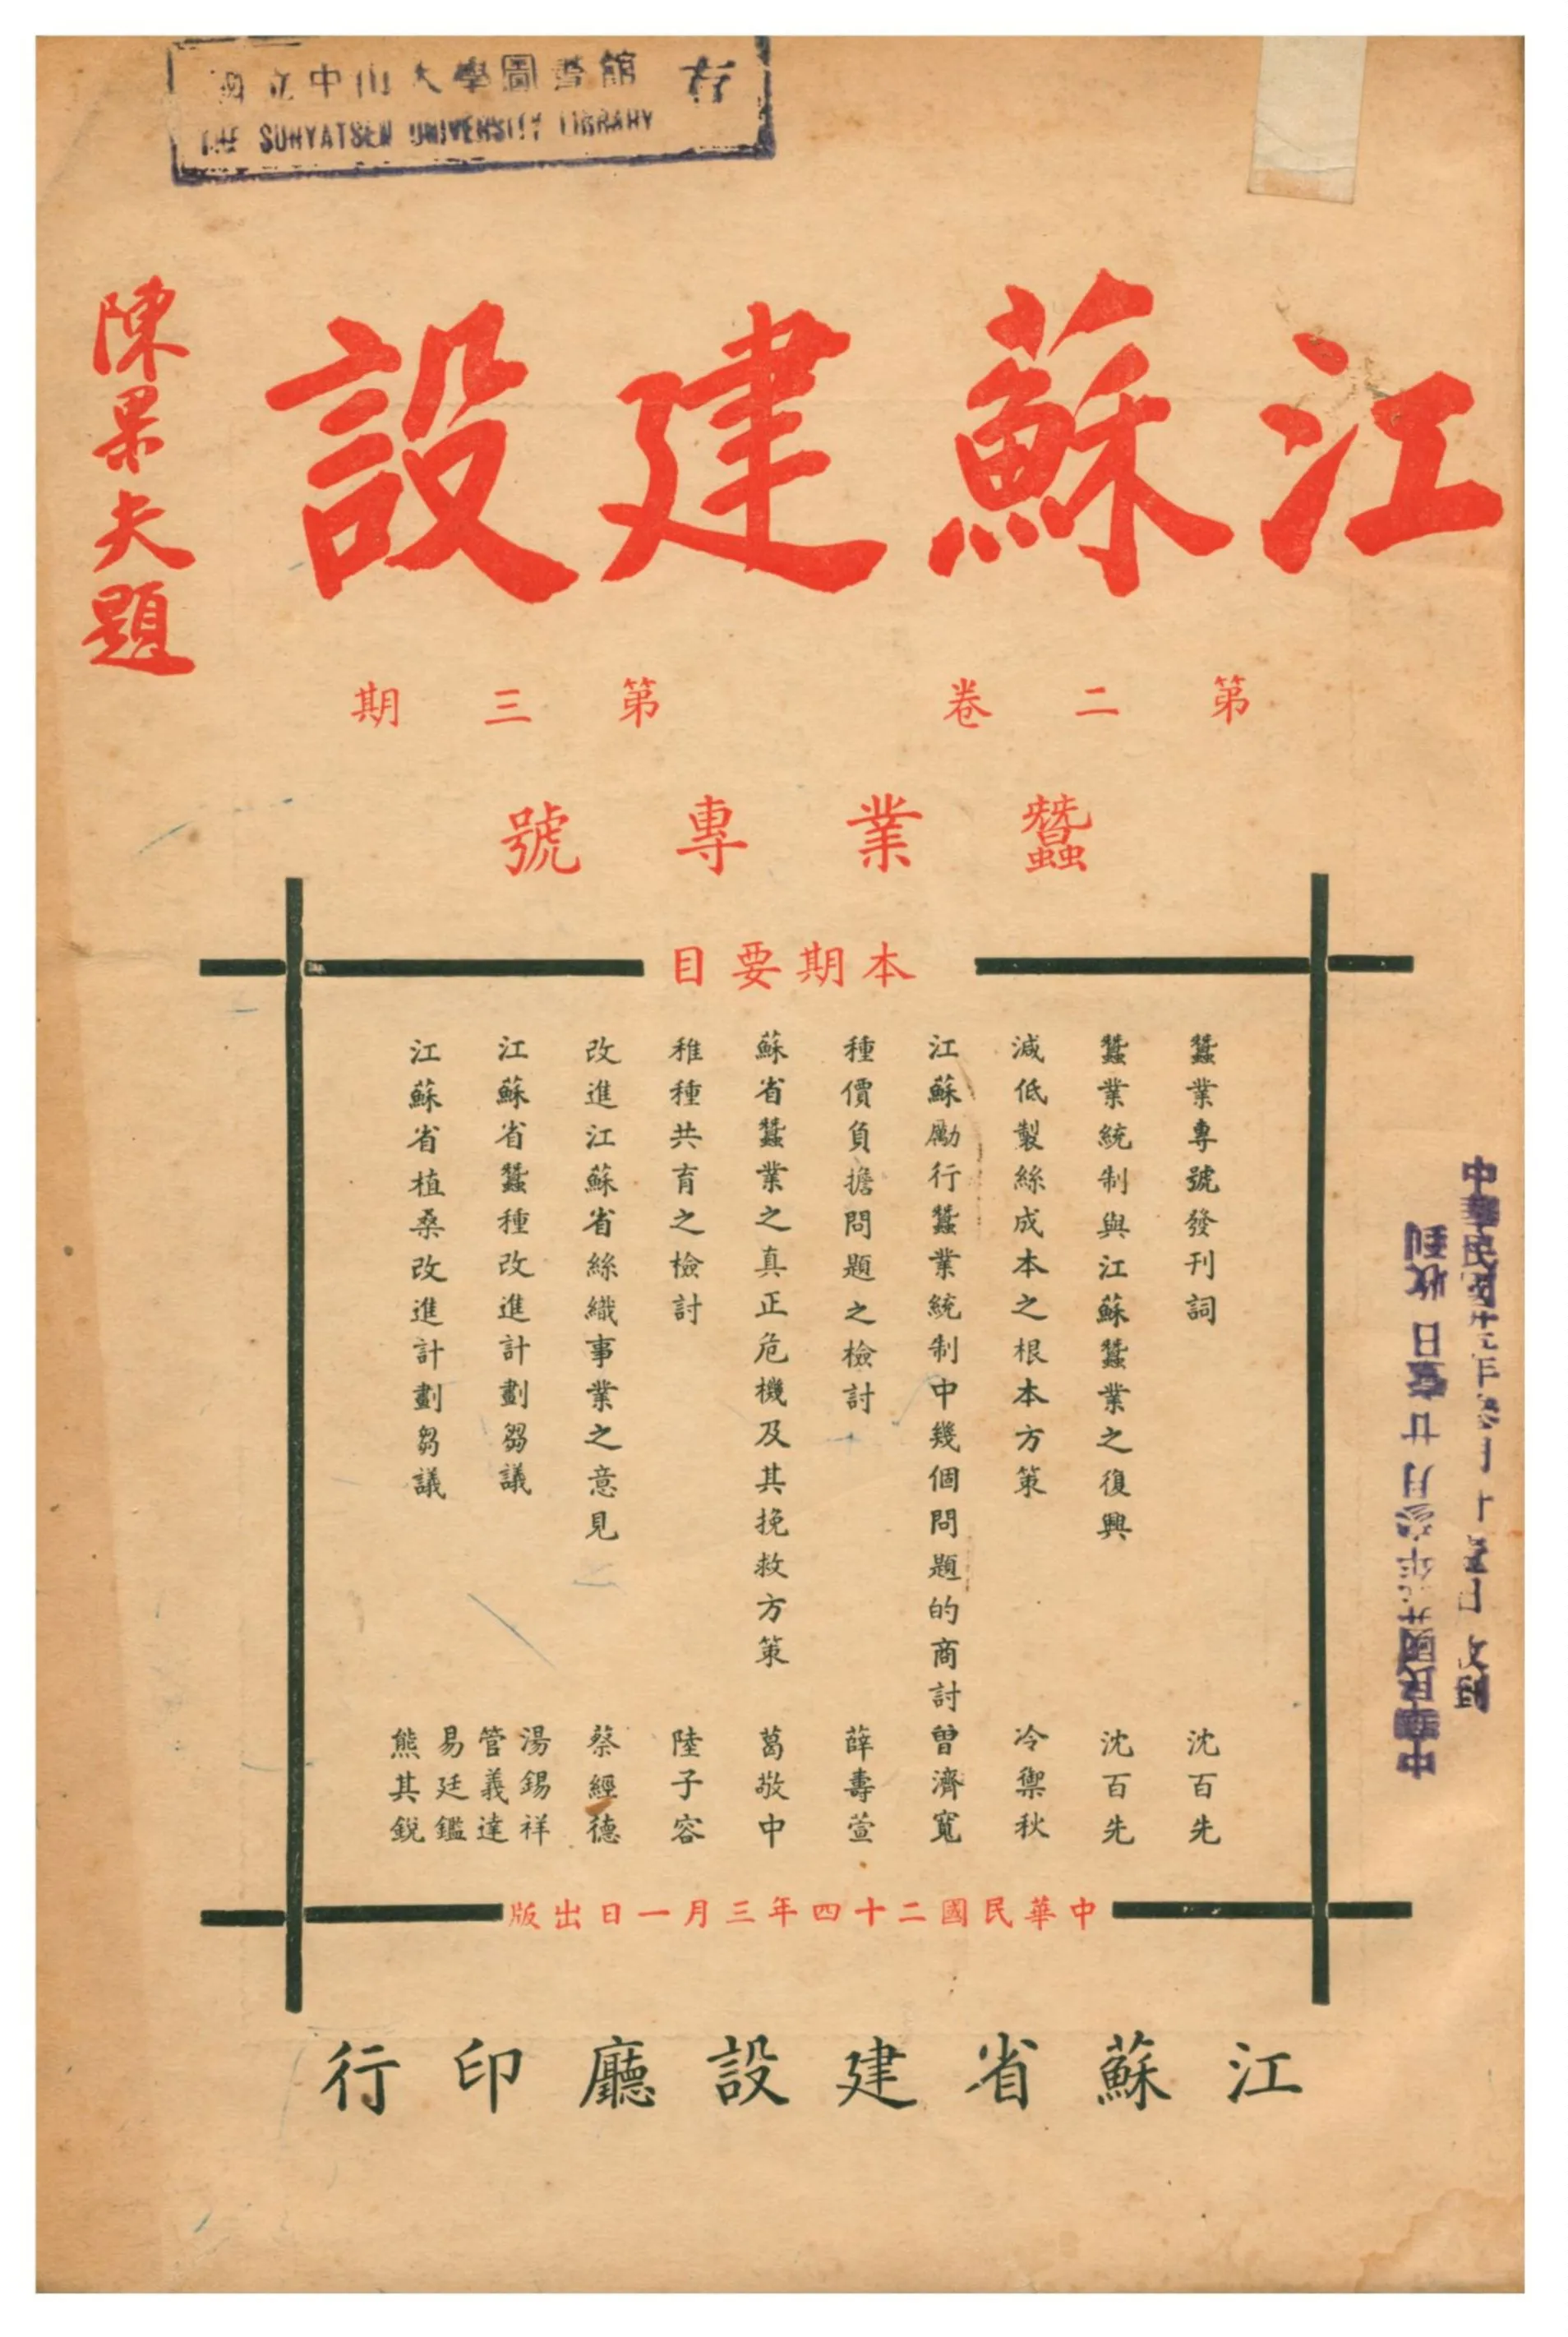 國立中山大學圖書館
THE SUNYATSEN UNIVERSITY LIBRARY
江蘇建設
陳果夫題
第二卷 第三期
蠶業專號
本期要目
蠶業專號發刊詞 沈百先
蠶業統制與江蘇蠶業之復興 沈百先
減低製絲成本之根本方策 冷禦秋
江蘇勵行蠶業統制中幾個問題的商討 曾濟寬
種價負擔問題之檢討 薛壽萱
蘇省蠶業之真正危機及其挽救方策 葛敬中
稚種共育之檢討 陸子容
改進江蘇省絲織事業之意見 蔡經德
江蘇省蠶種改進計劃芻議 湯錫祥 管義達
江蘇省植桑改進計劃芻議 易廷鑑 熊其銳
中華民國二十四年三月一日出版
江蘇省建設廳印行